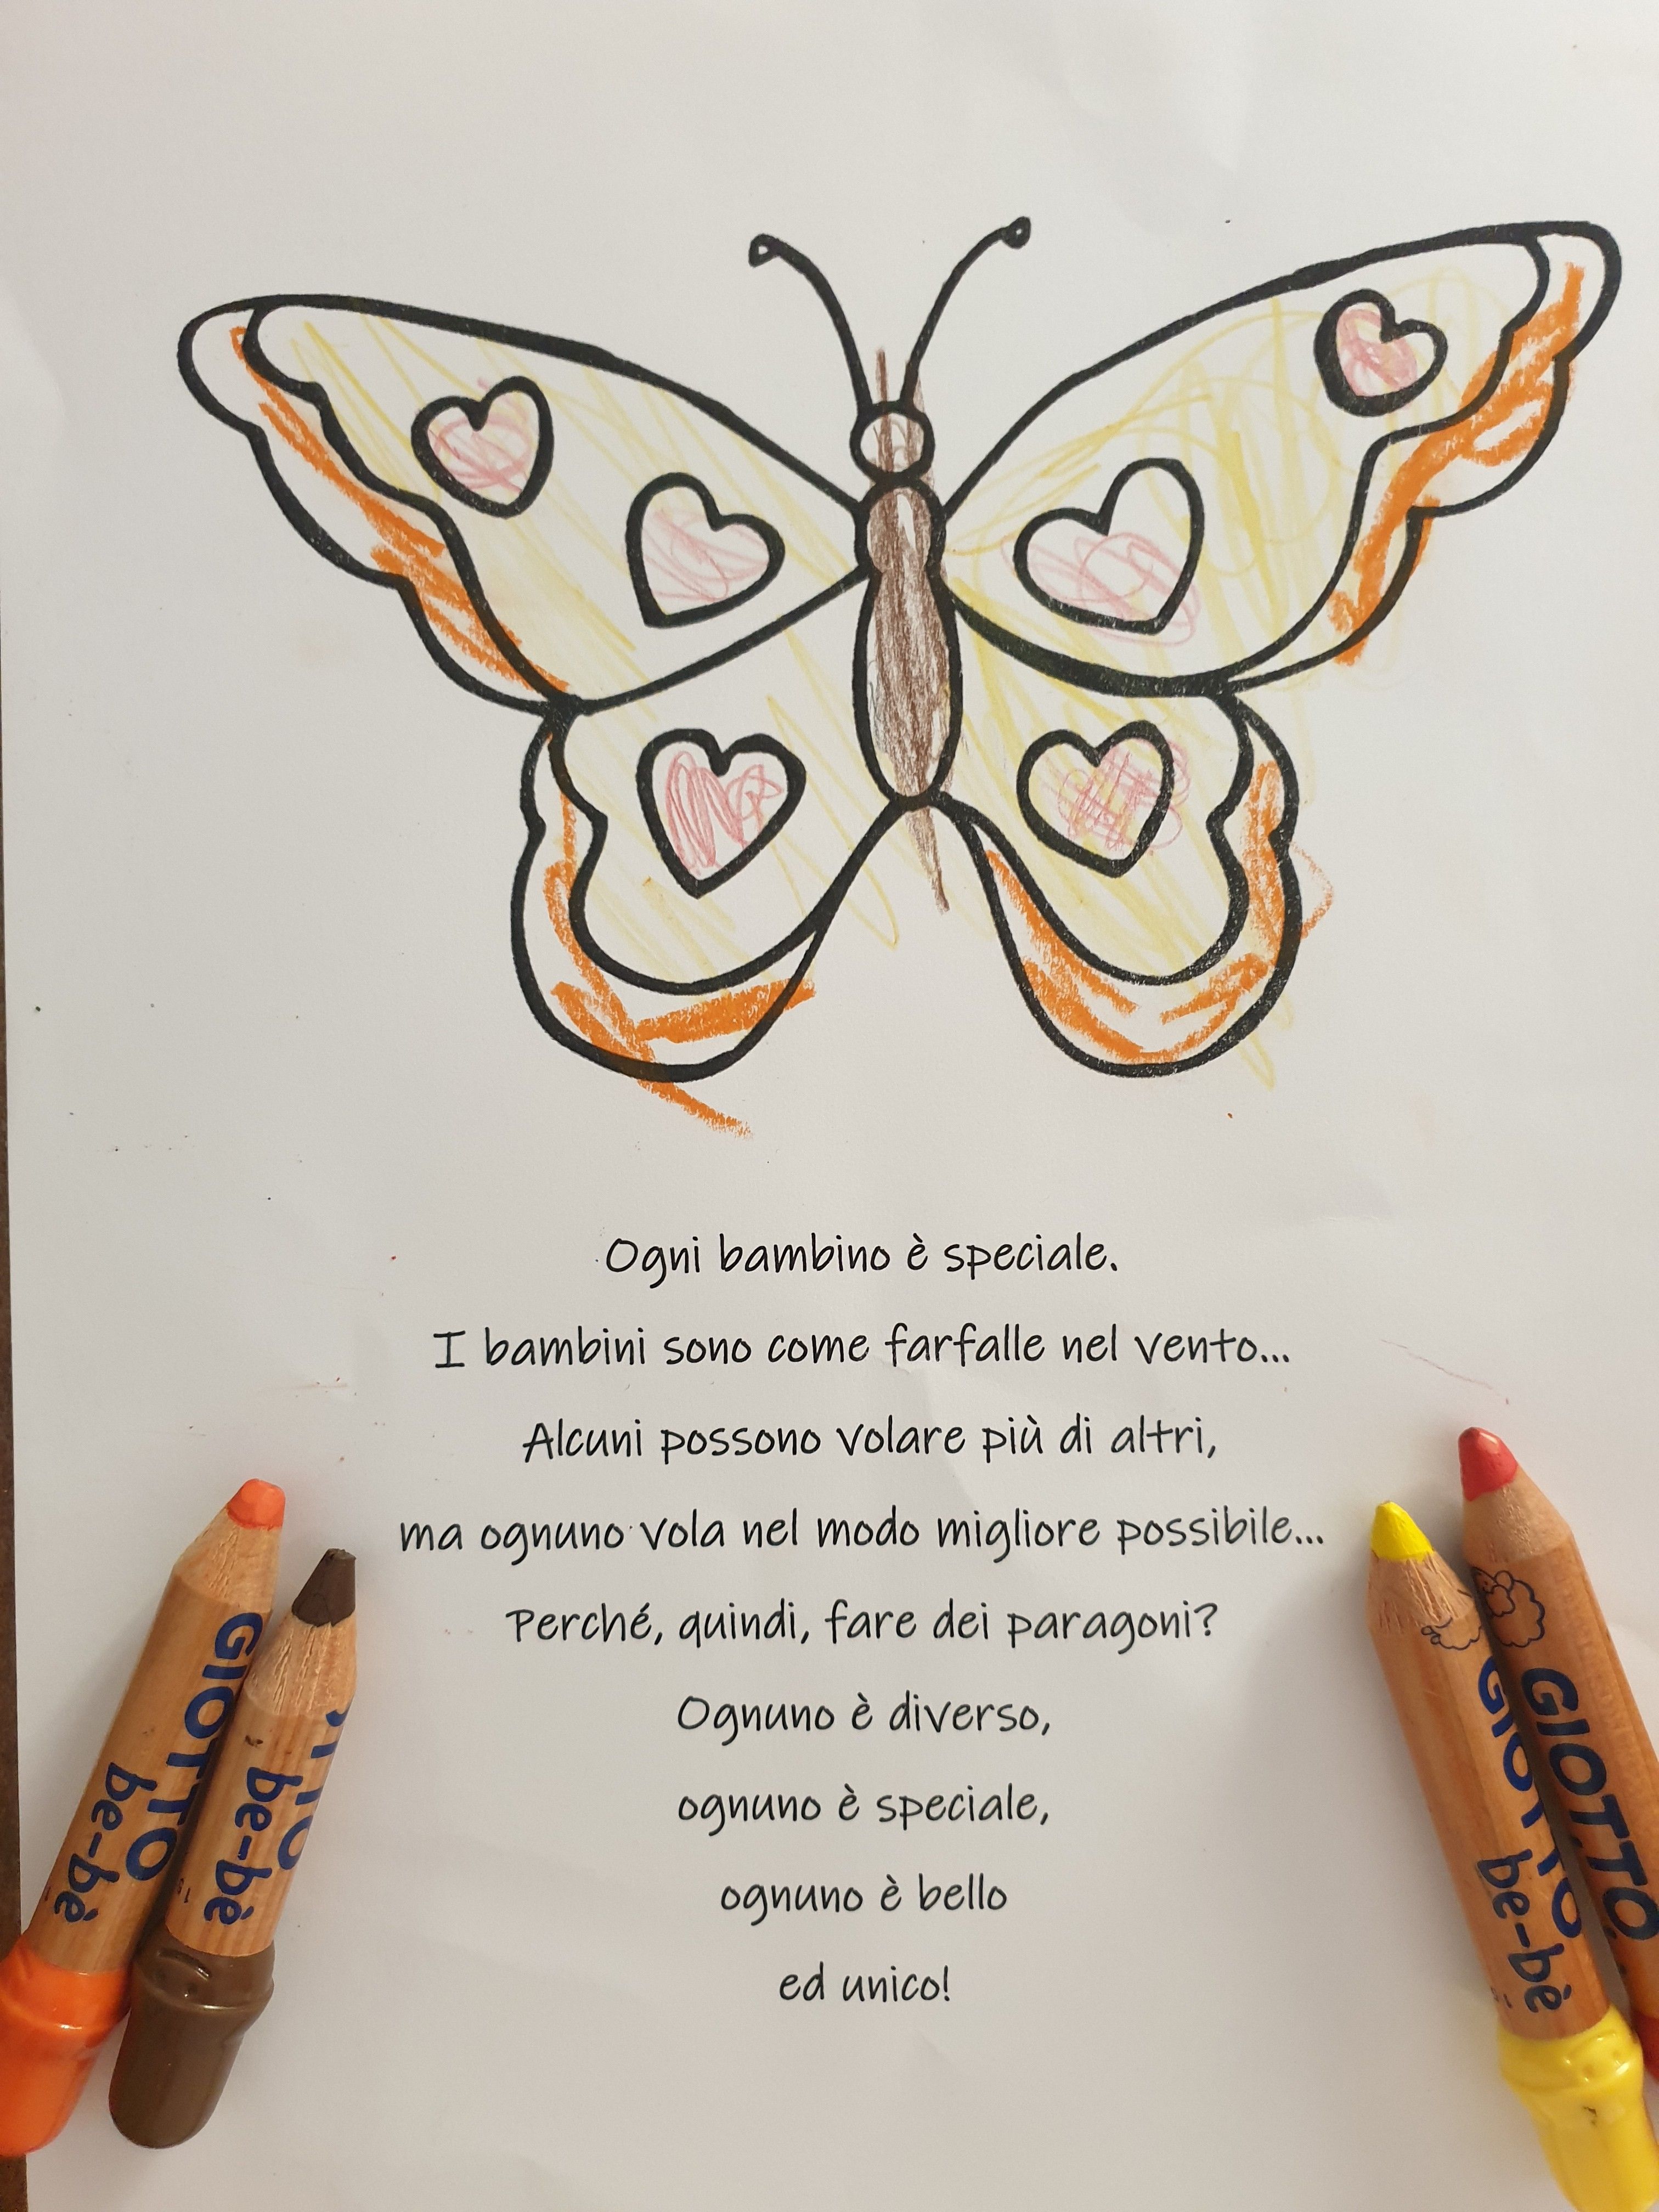 Ogni bambino è speciale.
I bambini sono come farfalle nel vento...
Alcuni possono volare più di altri,
ma ognuno vola nel modo migliore possibile...
Perché, quindi, fare dei paragoni?
Ognuno è diverso,
ognuno è speciale,
ognuno è bello
ed unico!
GIOTTO
be-bè
be-bè
GIOTTO
be-bè
GIOTTO